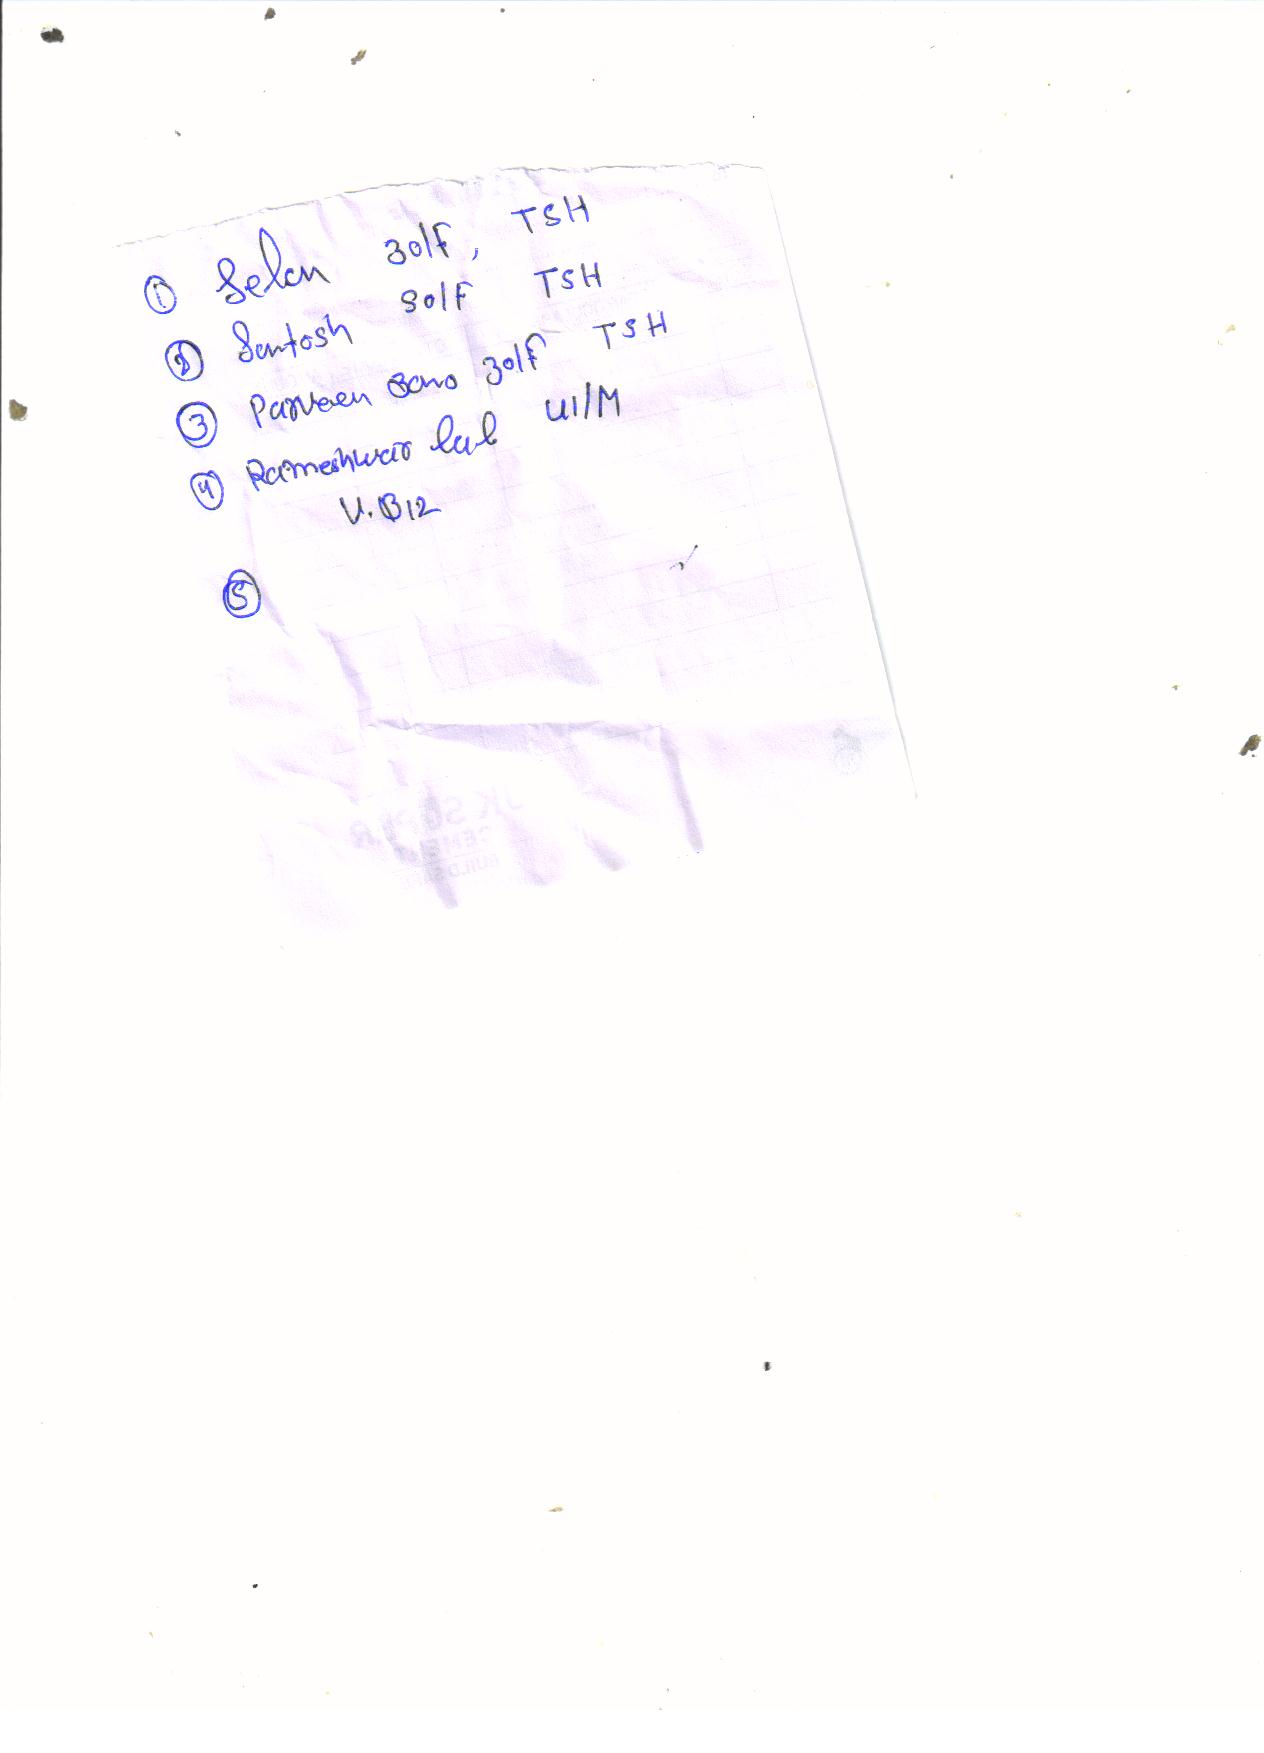 ① Selan 30/F, TSH
② Santosh 30/F TSH
③ Parveen Bano 30/F TSH
④ Rameshwar lal 41/M
V.B12
⑤
JK SUPER
CEMENT
BUILD SAFE